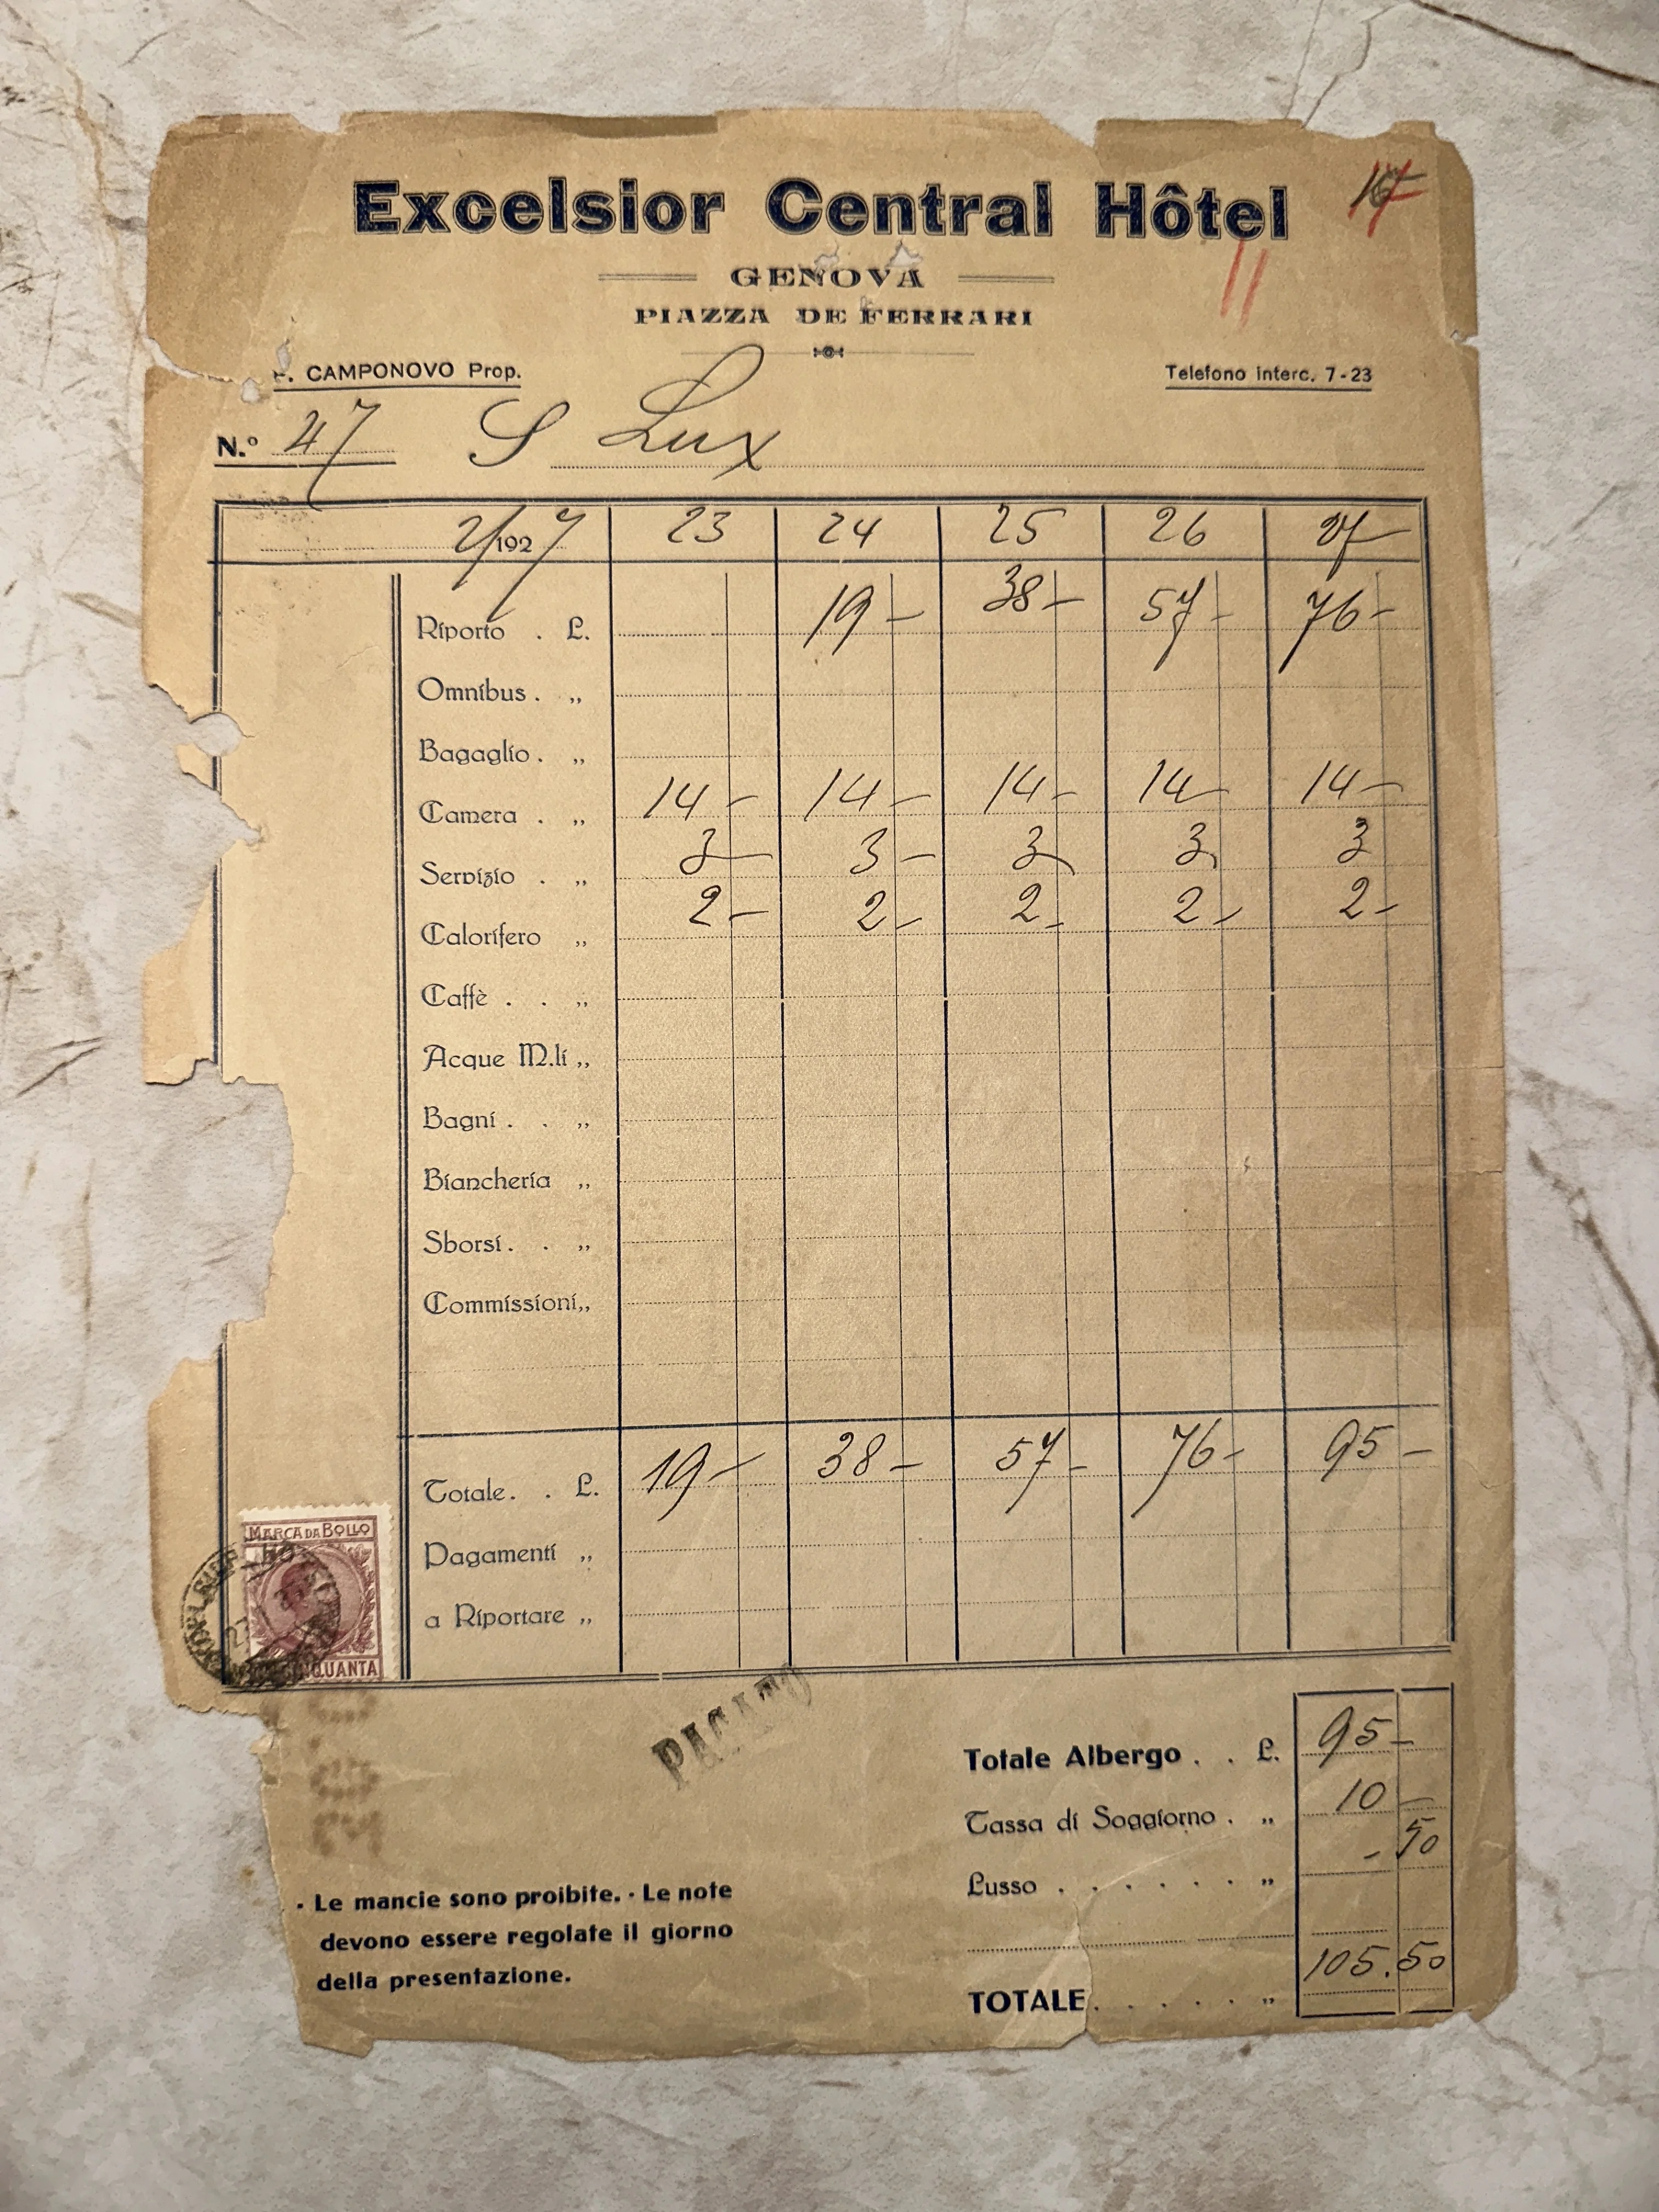 Excelsior Central Hôtel
GENOVA
PIAZZA DE FERRARI
CAMPONOVO Prop.
Telefono interc. 7-23
N.º 47 S Lux
2/1927 23 24 25 26 27
Riporto . L. 19 - 38 - 57 - 76 -
Omnibus . „
Bagaglio . „
Camera . „ 14 - 14 - 14 - 14 - 14 -
Servizio . „ 3 - 3 - 3 - 3 - 3
Calorifero „ 2 - 2 - 2 - 2 - 2 -
Caffè . . „
Acque M.li „
Bagni . . „
Biancheria „
Sborsi . . „
Commissioni „
Totale . . L. 19 - 38 - 57 - 76 - 95 -
Pagamenti „
a Riportare „
MARCA DA BOLLO
PAGATO
Totale Albergo . . L. 95 -
Tassa di Soggiorno . „ 10 -
Lusso . . . . . . . „ - 50
TOTALE . . . . . . „ 105.50
- Le mancie sono proibite. - Le note
devono essere regolate il giorno
della presentazione.